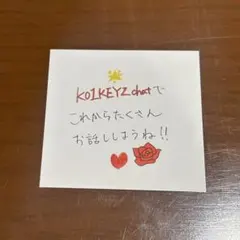 KO1KEYZ chatで
これからたくさん
お話ししようね!!